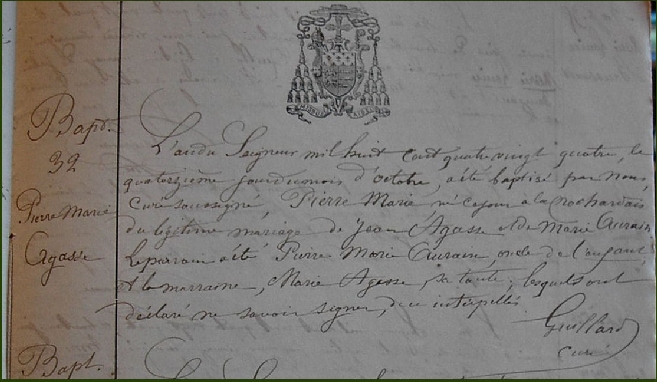 Bapt.
32
Pierre Marie
Agasse
L'an du Seigneur mil huit cent quatre vingt quatre, le
quatorzième jour du mois d'octobre, a été baptisé par nous,
curé soussigné, Pierre Marie né ce jour à la Rochardais
du légitime mariage de Jean Agasse et de Marie
le parrain a été Pierre Marie oncle de l'enfant
et la marraine, Marie Agasse, sa tante, lesquels ont
déclaré ne savoir signer, de ce interpellés.
Guillard
curé
Bapt.